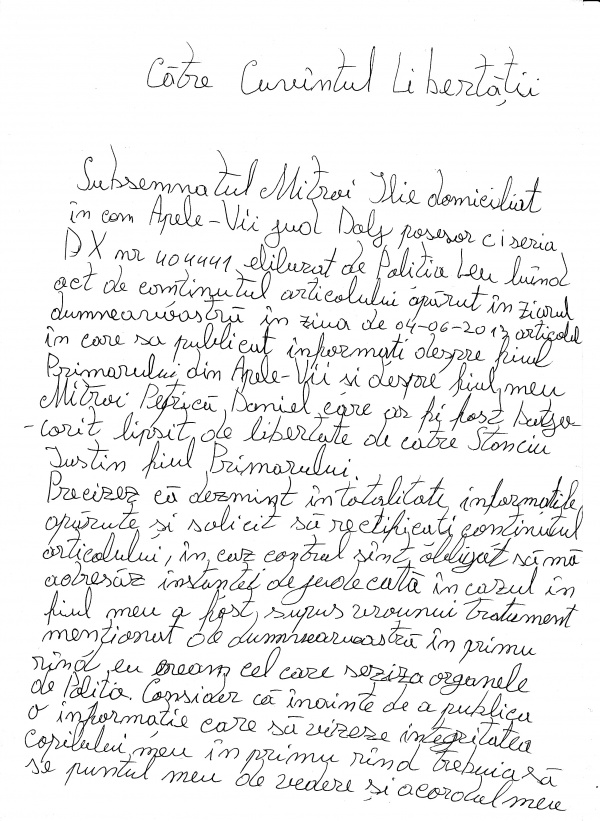 Către Cuvîntul Libertății
Subsemnatul Mitroi Ilie domiciliat
în com Apele-Vii jud Dolj posesor ci seria
DX nr 404441 eliburat de Politia Leu luînd
act de continutul articolului apărut în ziarul
dumneavoastră în ziua de 04-06-2013 articolul
în care sa publicat informati despre fiul
Primarului din Apele-Vii si despre fiul meu
Mitroi Petrică Daniel care ar fi fost
lipsit de libertate de catre Stanciu
Iustin fiul Primarului.
Precizez că dezmint în totalitate informatiile
apărute și solicit să rectificati continutul
articolului, în caz contrar sînt obligat să mă
adresăz instantei de judecată în cazul în
fiul meu a fost supus vrounui tratament
mentionat de dumneavoastră în primu
rînd eu eream cel care seziza organele
de Politia. Consider că înainte de a publica
o informatie care să vizeze integritatea
copilului meu în primu rînd trebuia să
se puntul meu de vedere și acordul meu